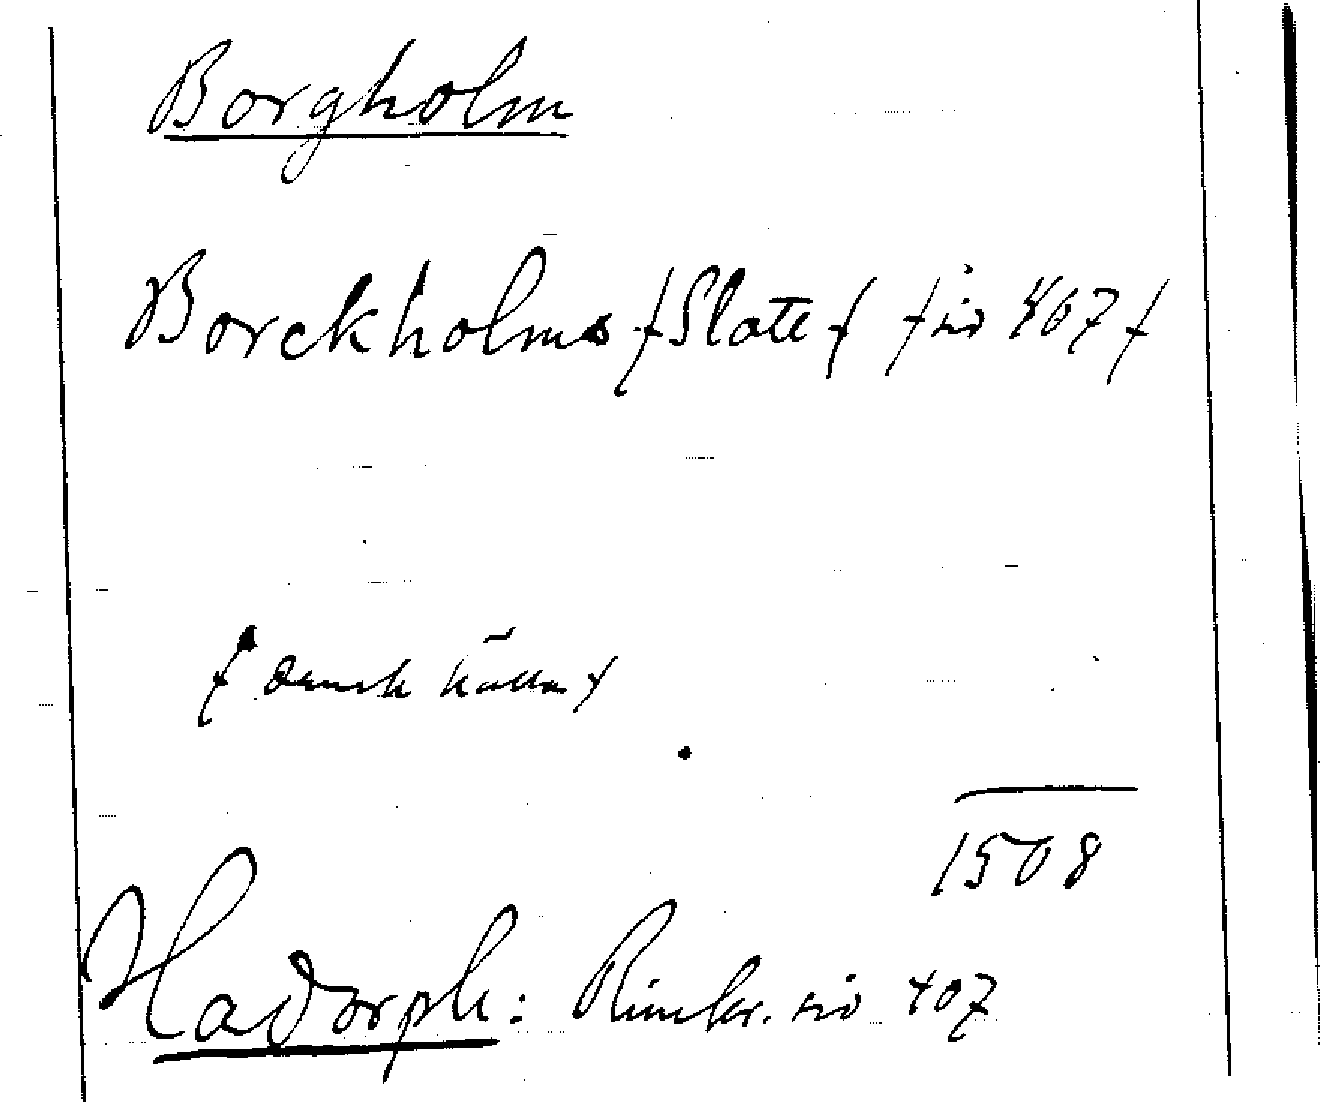 Borgholm
Borckholms (Slott) (sid 407)
(dansk källa)
1508
Hadorph: Rimkr. sid 407